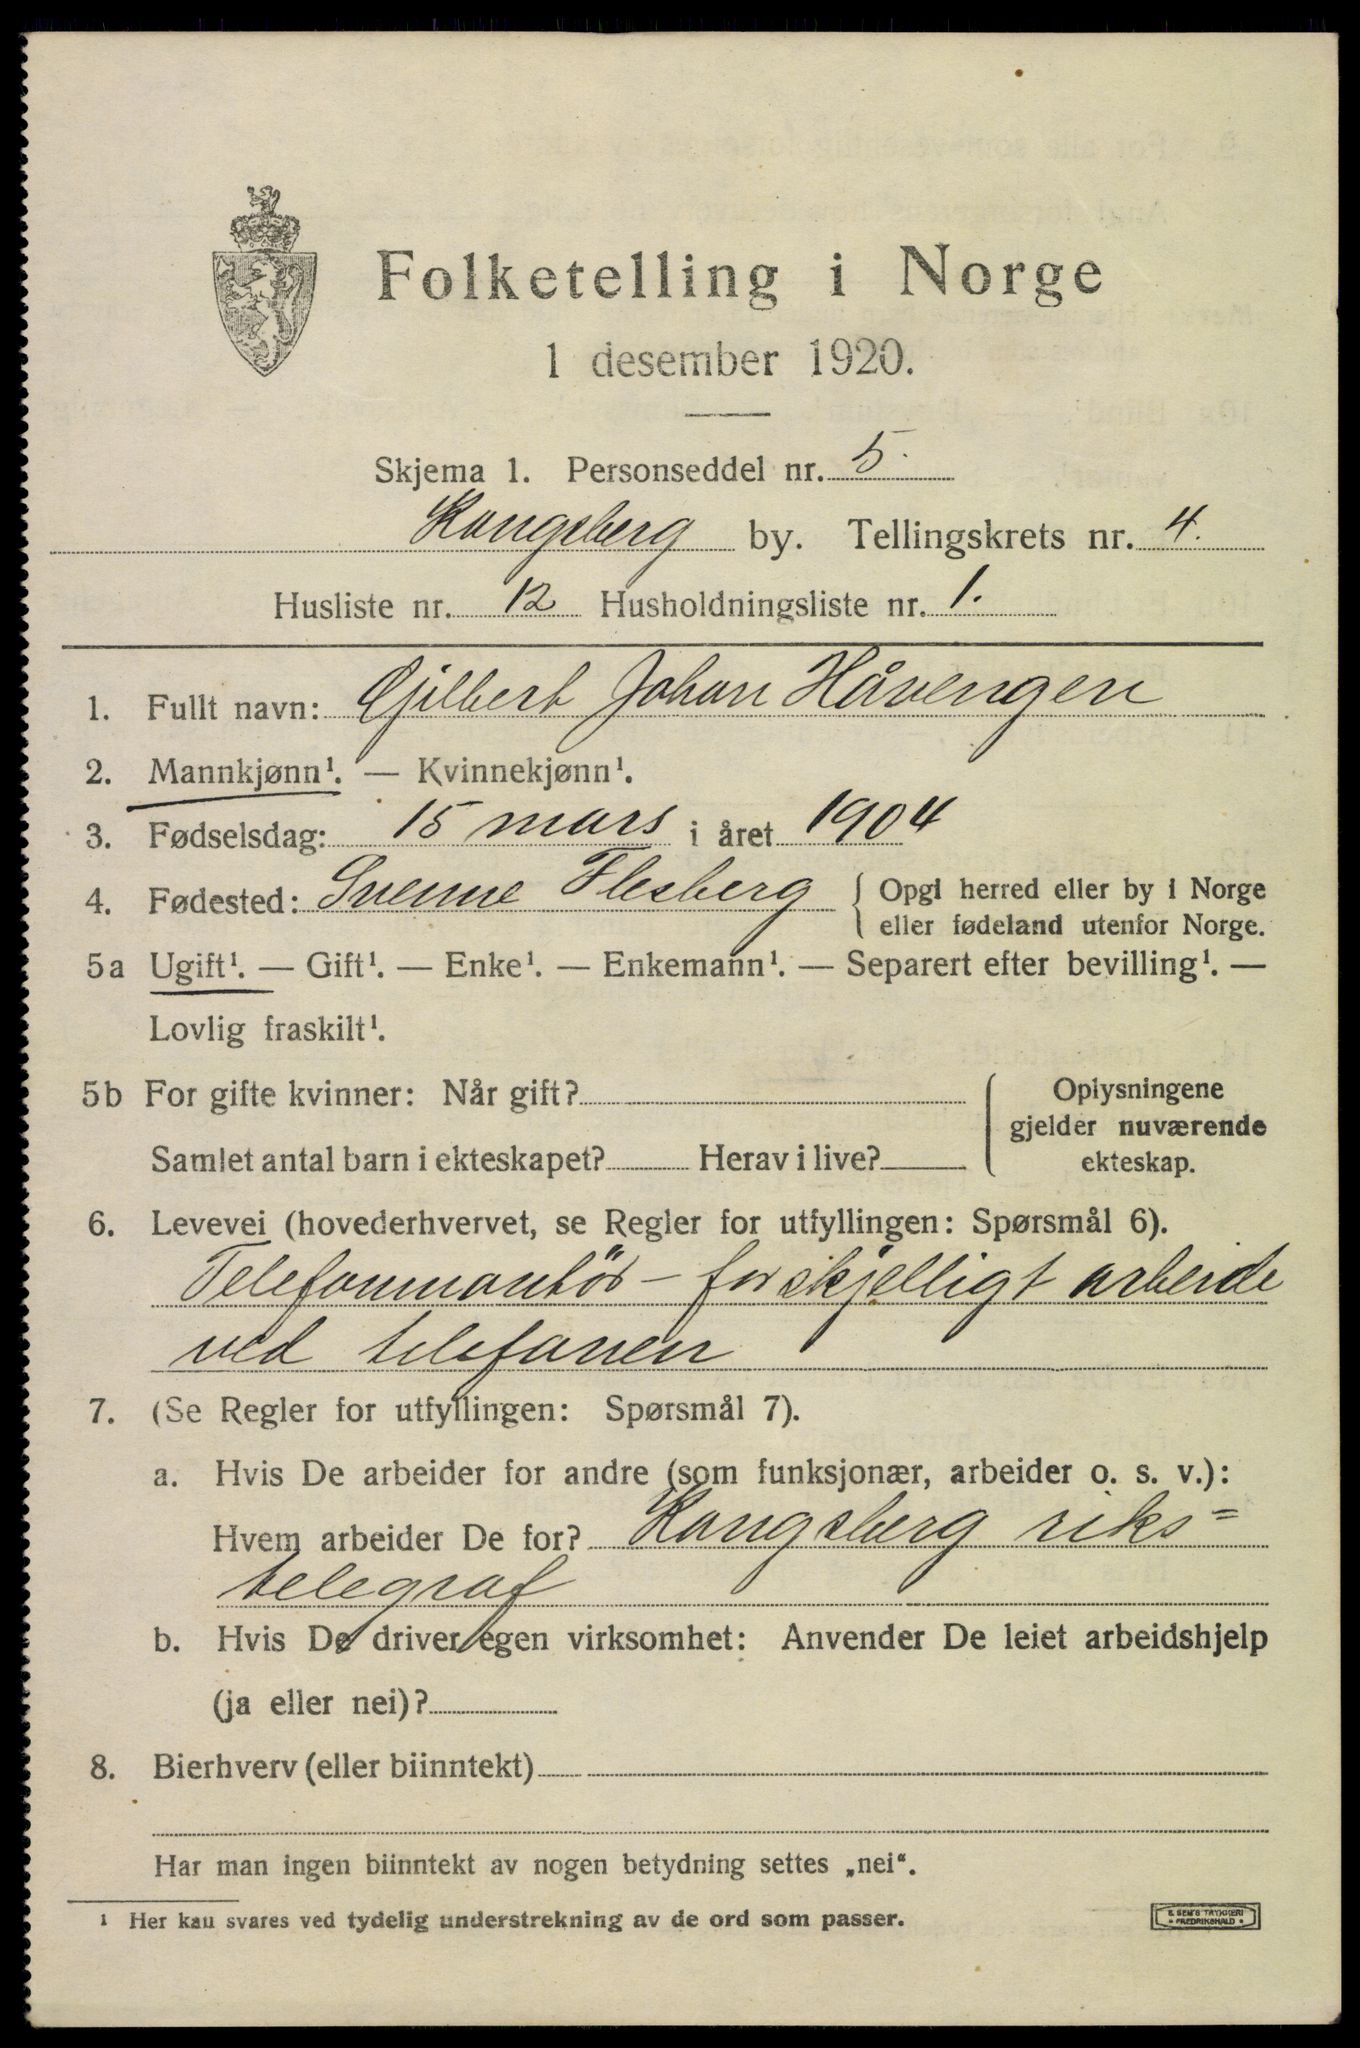 Folketelling i Norge
1 desember 1920.
Skjema 1. Personseddel nr. 5.
Kongsberg by. Tellingskrets nr. 4.
Husliste nr. 12 Husholdningsliste nr. 1.
1. Fullt navn: Gjilbert Johan Håvengen
2. Mannkjønn¹. — Kvinnekjønn¹.
3. Fødselsdag: 15 mars i året 1904
4. Fødested: Svenne Flesberg { Opgi herred eller by i Norge
eller fødeland utenfor Norge.
5a Ugift¹. — Gift¹. — Enke¹. — Enkemann¹. — Separert efter bevilling¹. —
Lovlig fraskilt¹.
5b For gifte kvinner: Når gift? { Oplysningene
gjelder nuværende
Samlet antal barn i ekteskapet? Herav i live? ekteskap.
6. Levevei (hovederhvervet, se Regler for utfyllingen: Spørsmål 6).
Telefonmontör – forskjelligt arbeide
ved telefonen
7. (Se Regler for utfyllingen: Spørsmål 7).
a. Hvis De arbeider for andre (som funksjonær, arbeider o. s. v.):
Hvem arbeider De for? Kongsberg riks=
telegraf
b. Hvis De driver egen virksomhet: Anvender De leiet arbeidshjelp
(ja eller nei)?
8. Bierhverv (eller biinntekt)
Har man ingen biinntekt av nogen betydning settes „nei“.
¹ Her kan svares ved tydelig understrekning av de ord som passer.
E. SEM'S TRYKKERI
FREDRIKSHALD